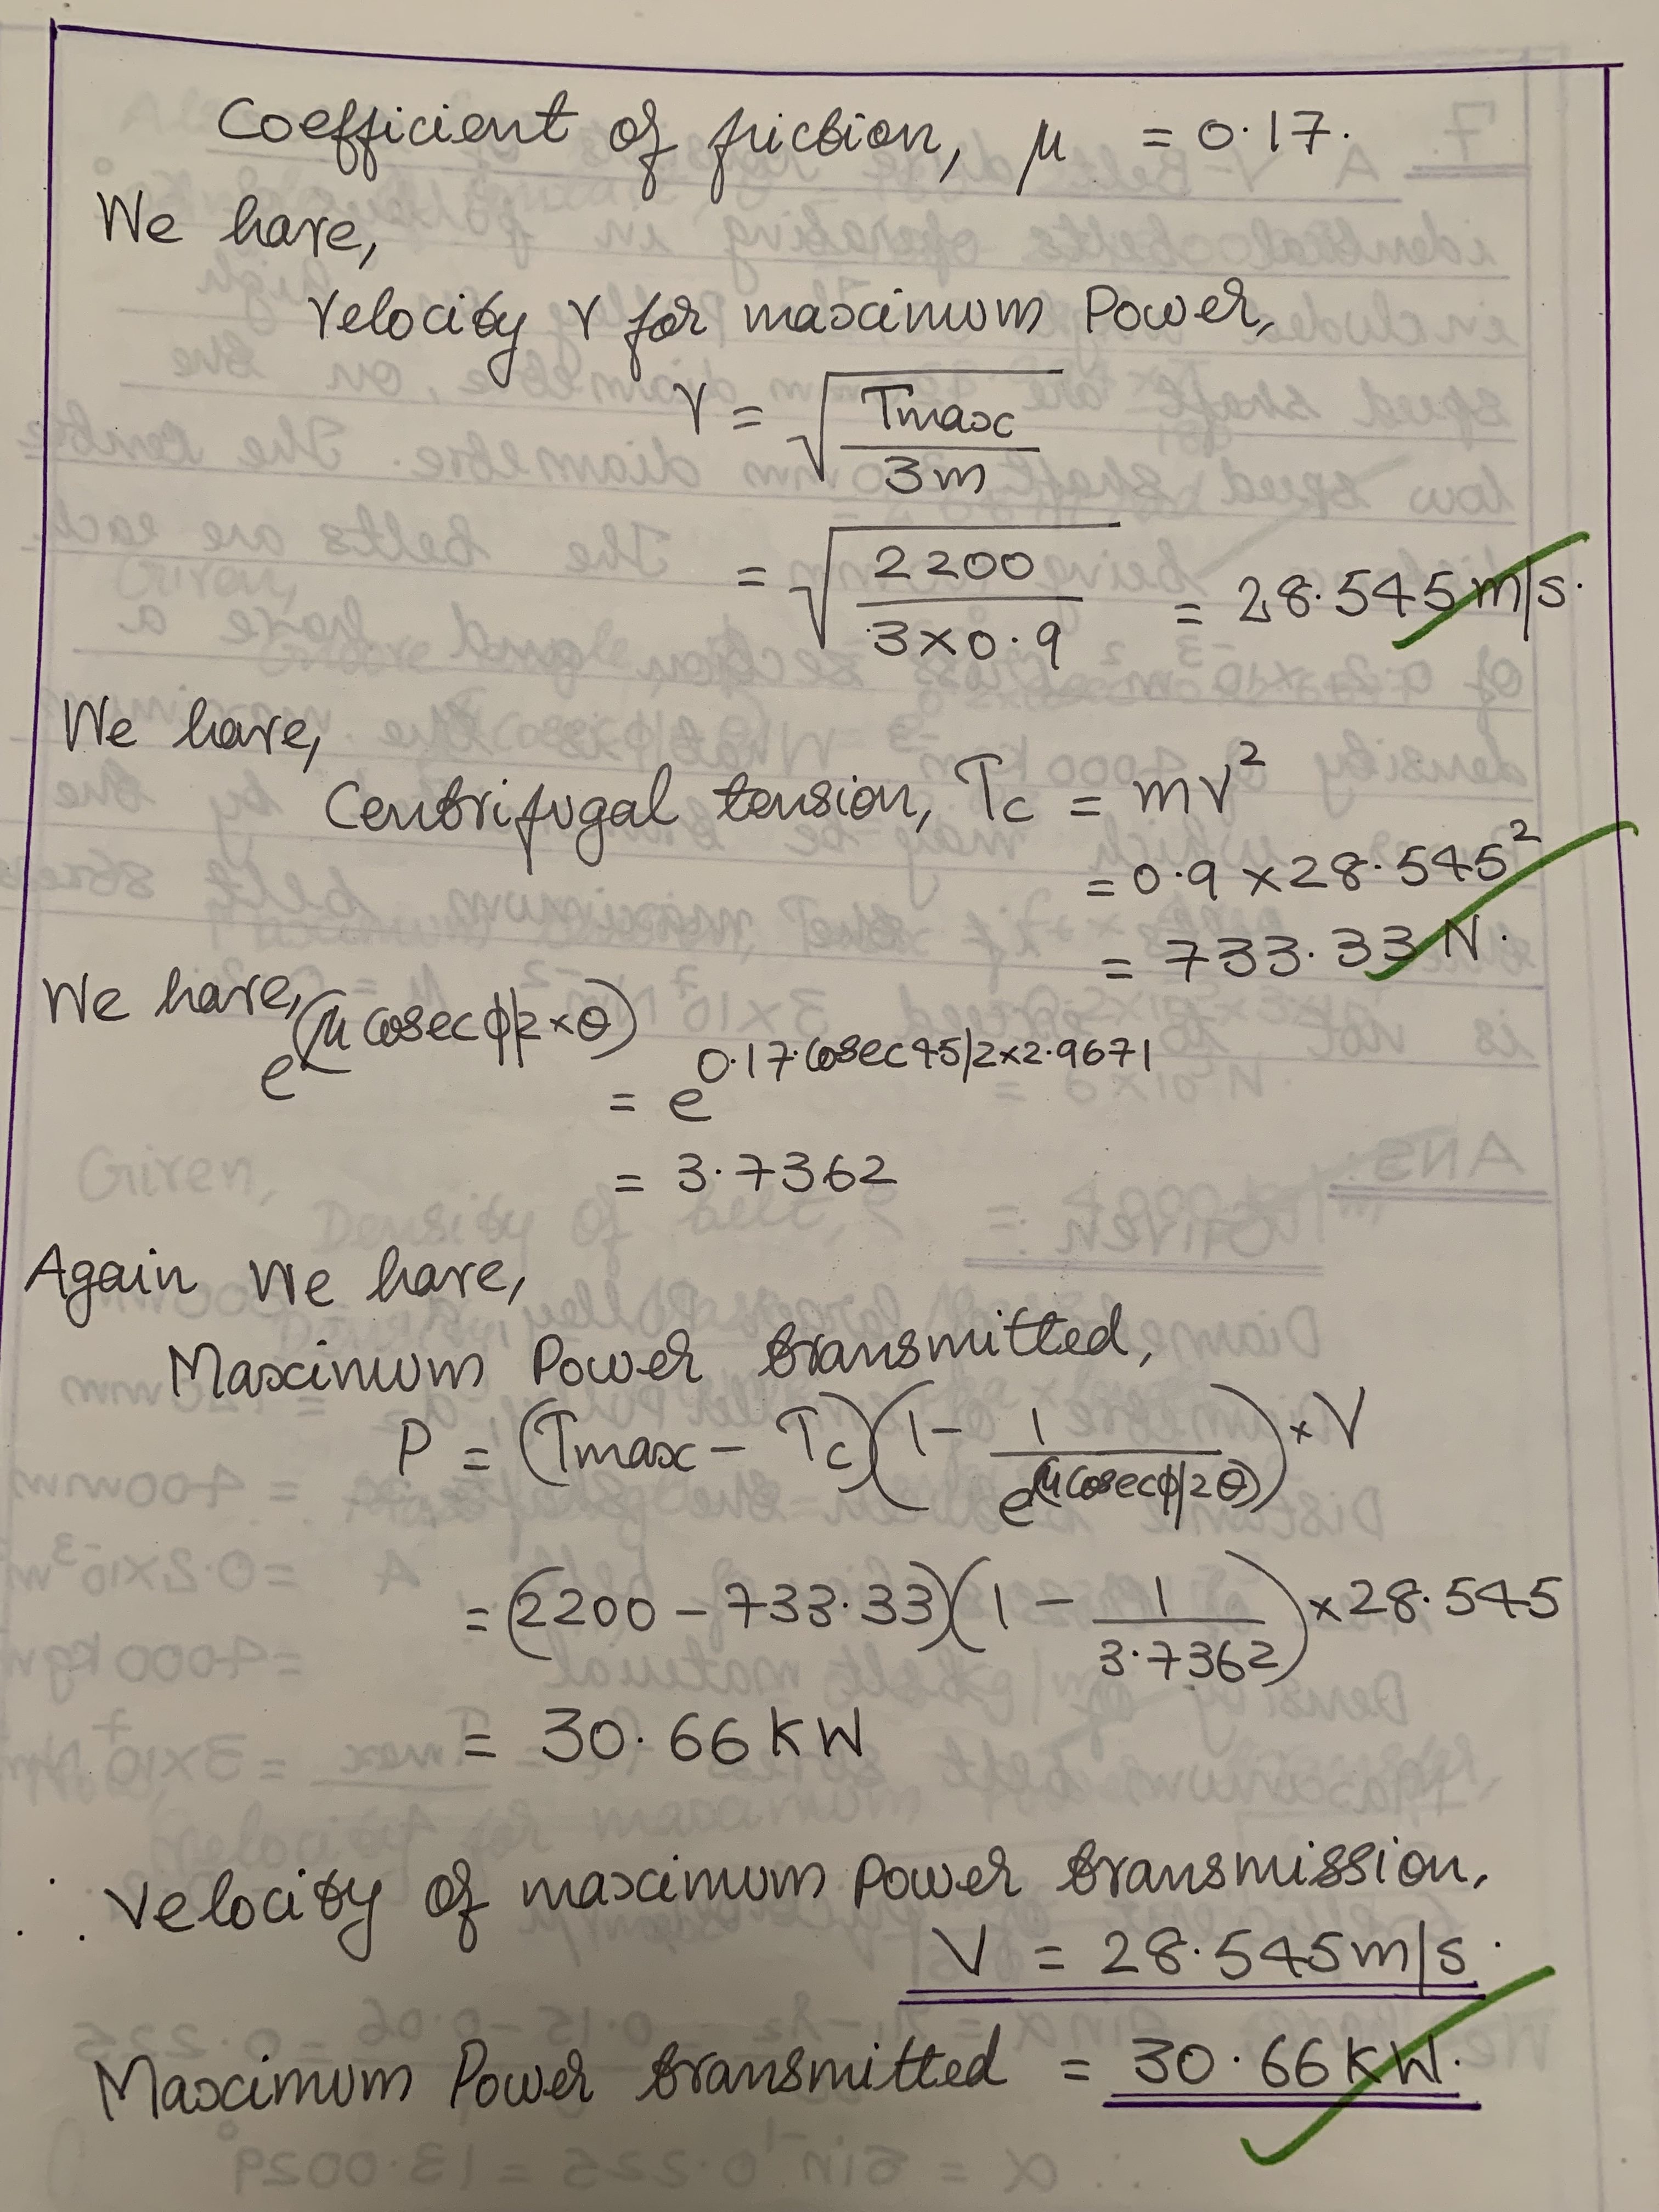 Coefficient of friction, μ = 0.17.
We have,
Velocity V for maximum Power,
V = √(Tmax / 3m)
= √(2200 / 3×0.9) = 28.545 m/s.
We have,
Centrifugal tension, Tc = mV²
= 0.9 × 28.545²
= 733.33 N.
We have,
e^(μ cosec ϕ/2 × θ) = e^0.17 cosec 45/2 × 2.9671
= 3.7362
Again We have,
Maximum Power transmitted,
P = (Tmax − Tc)(1 − 1 / e^(μ cosec ϕ/2 θ)) × V
= (2200 − 733.33)(1 − 1 / 3.7362) × 28.545
= 30.66 KW
∴ Velocity of maximum Power transmission,
V = 28.545 m/s.
Maximum Power transmitted = 30.66 KW.